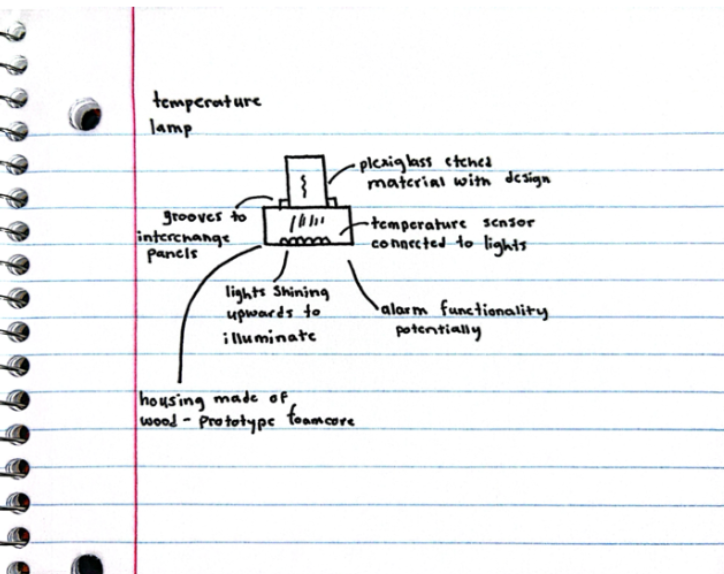 temperature
lamp
plexiglass etched
material with design
grooves to
interchange
panels
temperature sensor
connected to lights
lights shining
upwards to
illuminate
alarm functionality
potentially
housing made of
wood - prototype foamcore